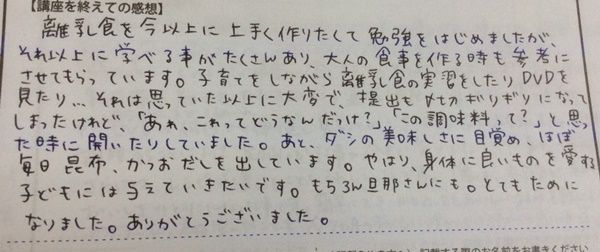 【講座を終えての感想】
離乳食を今以上に上手く作りたくて勉強をはじめましたが、
それ以上に学べる事がたくさんあり、大人の食事を作る時も参考に
させてもらっています。子育てをしながら離乳食の実習をしたりDVDを
見たり…それは思っていた以上に大変で、提出も〆切ギリギリになって
しまったけれど、「あれ、これってどうなんだっけ?」、「この調味料って?」と思っ
た時に開いたりしていました。あと、ダシの美味しさに目覚め、ほぼ
毎日昆布、かつおだしを出しています。やはり、身体に良いものを愛する
子どもには与えていきたいです。もちろん旦那さんにも。とてもために
なりました。ありがとうございました。
記載する際のお名前をお書きください